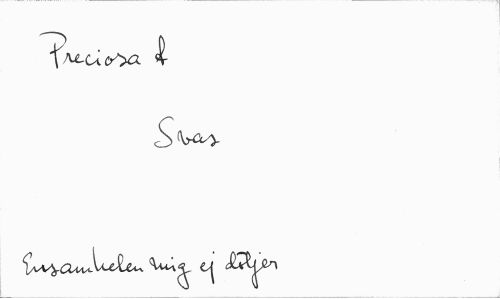 Preciosa A
Svas
Ensamheten mig ej döljer